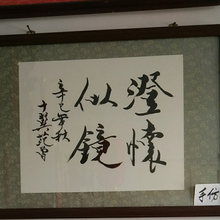 澄懷
似鏡
辛巳年秋
手仿